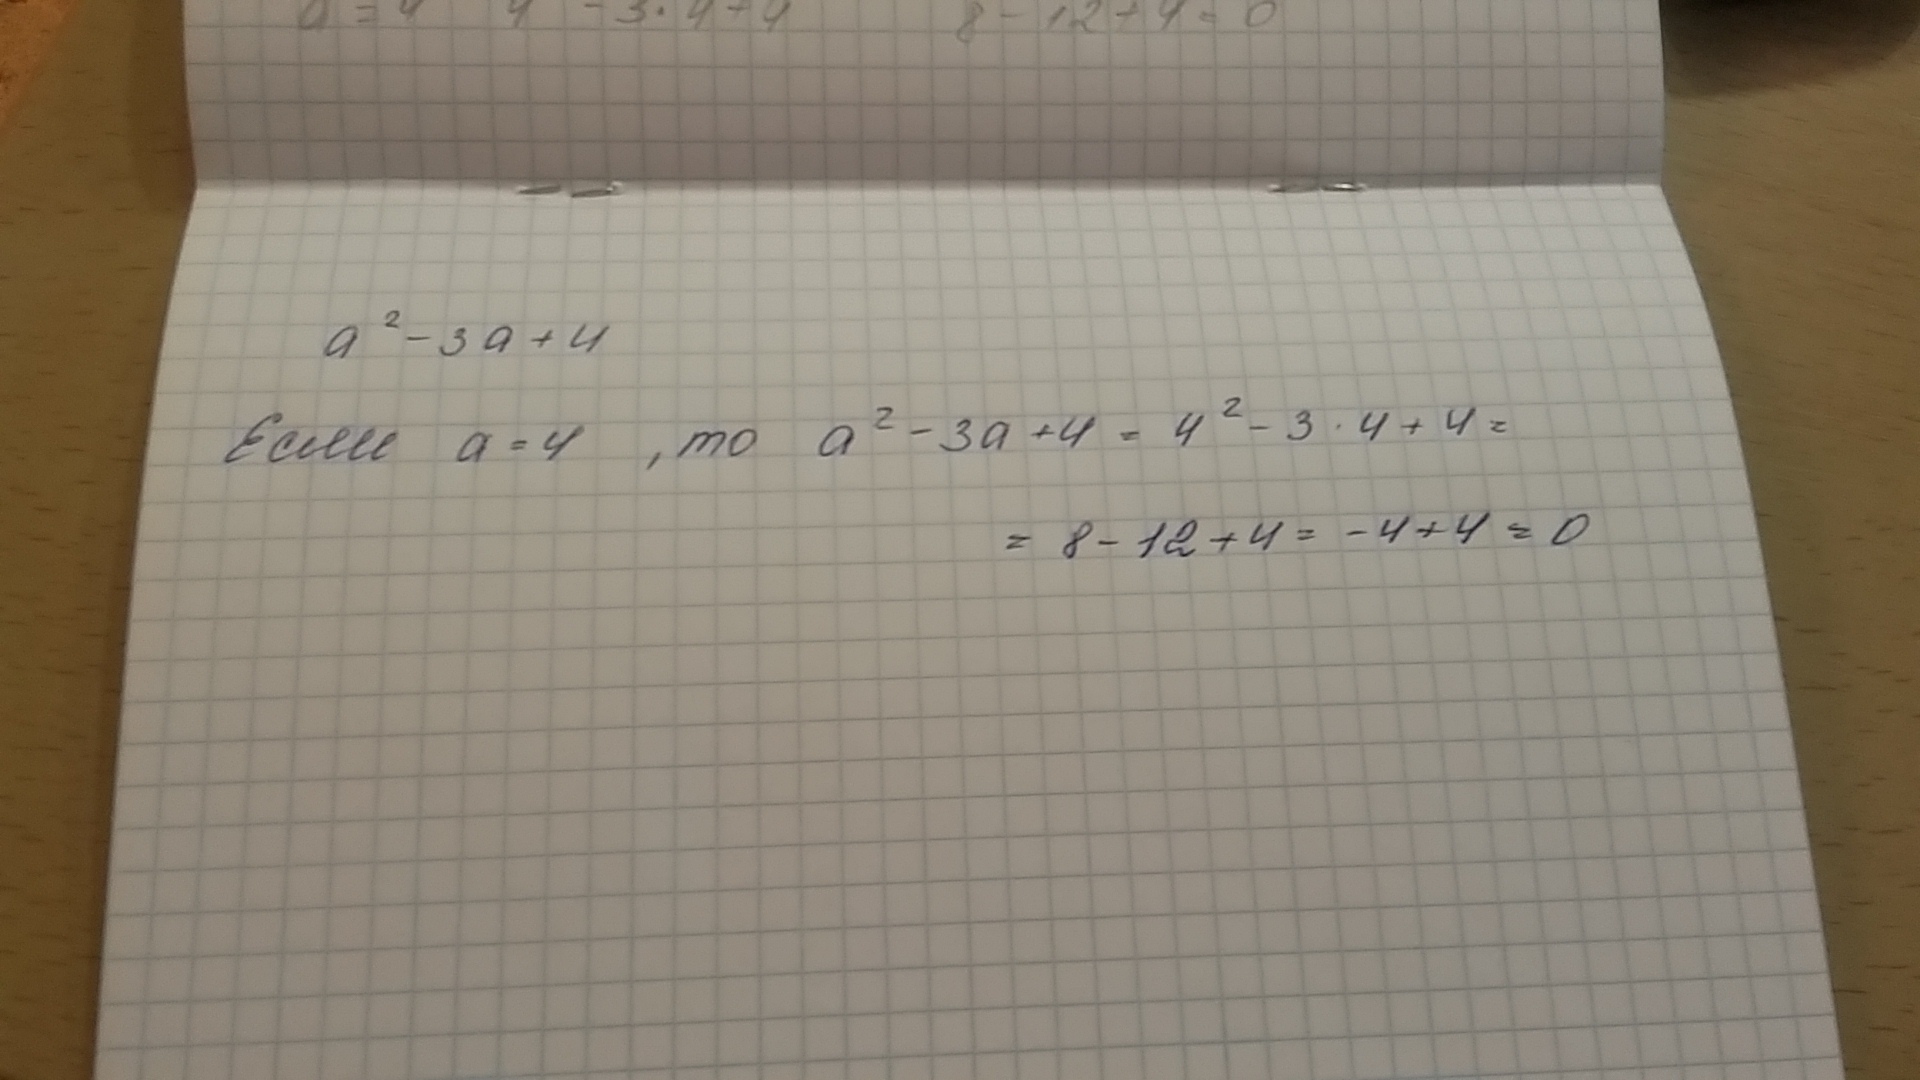 a = 4 4 - 3 · 4 + 4 8 - 12 + 4 = 0
a² - 3a + 4
Если a = 4 , то a² - 3a + 4 = 4² - 3 · 4 + 4 =
= 8 - 12 + 4 = - 4 + 4 = 0